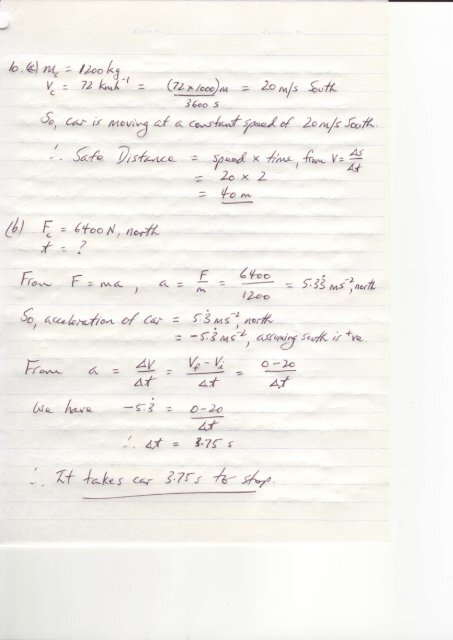 10. (a) m_c = 1200 kg
V_c = 72 kmh⁻¹ = (72 x 1000) m / 3600 s = 20 m/s South
So, car is moving at a constant speed of 20 m/s South.
∴ Safe Distance = speed x time, from V = Δs/Δt
= 20 x 2
= 40 m
(b) F_c = 6400 N, north
t = ?
From F = ma, a = F/m = 6400/1200 = 5.33̇ ms⁻², north
So, acceleration of car = 5.3̇ ms⁻², north
= -5.3̇ ms⁻², assuming south is +ve.
From a = ΔV/Δt = (V_f - V_i)/Δt = (0-20)/Δt
We have -5.3̇ = (0-20)/Δt
∴ Δt = 3.75 s
∴ It takes car 3.75 s to stop.